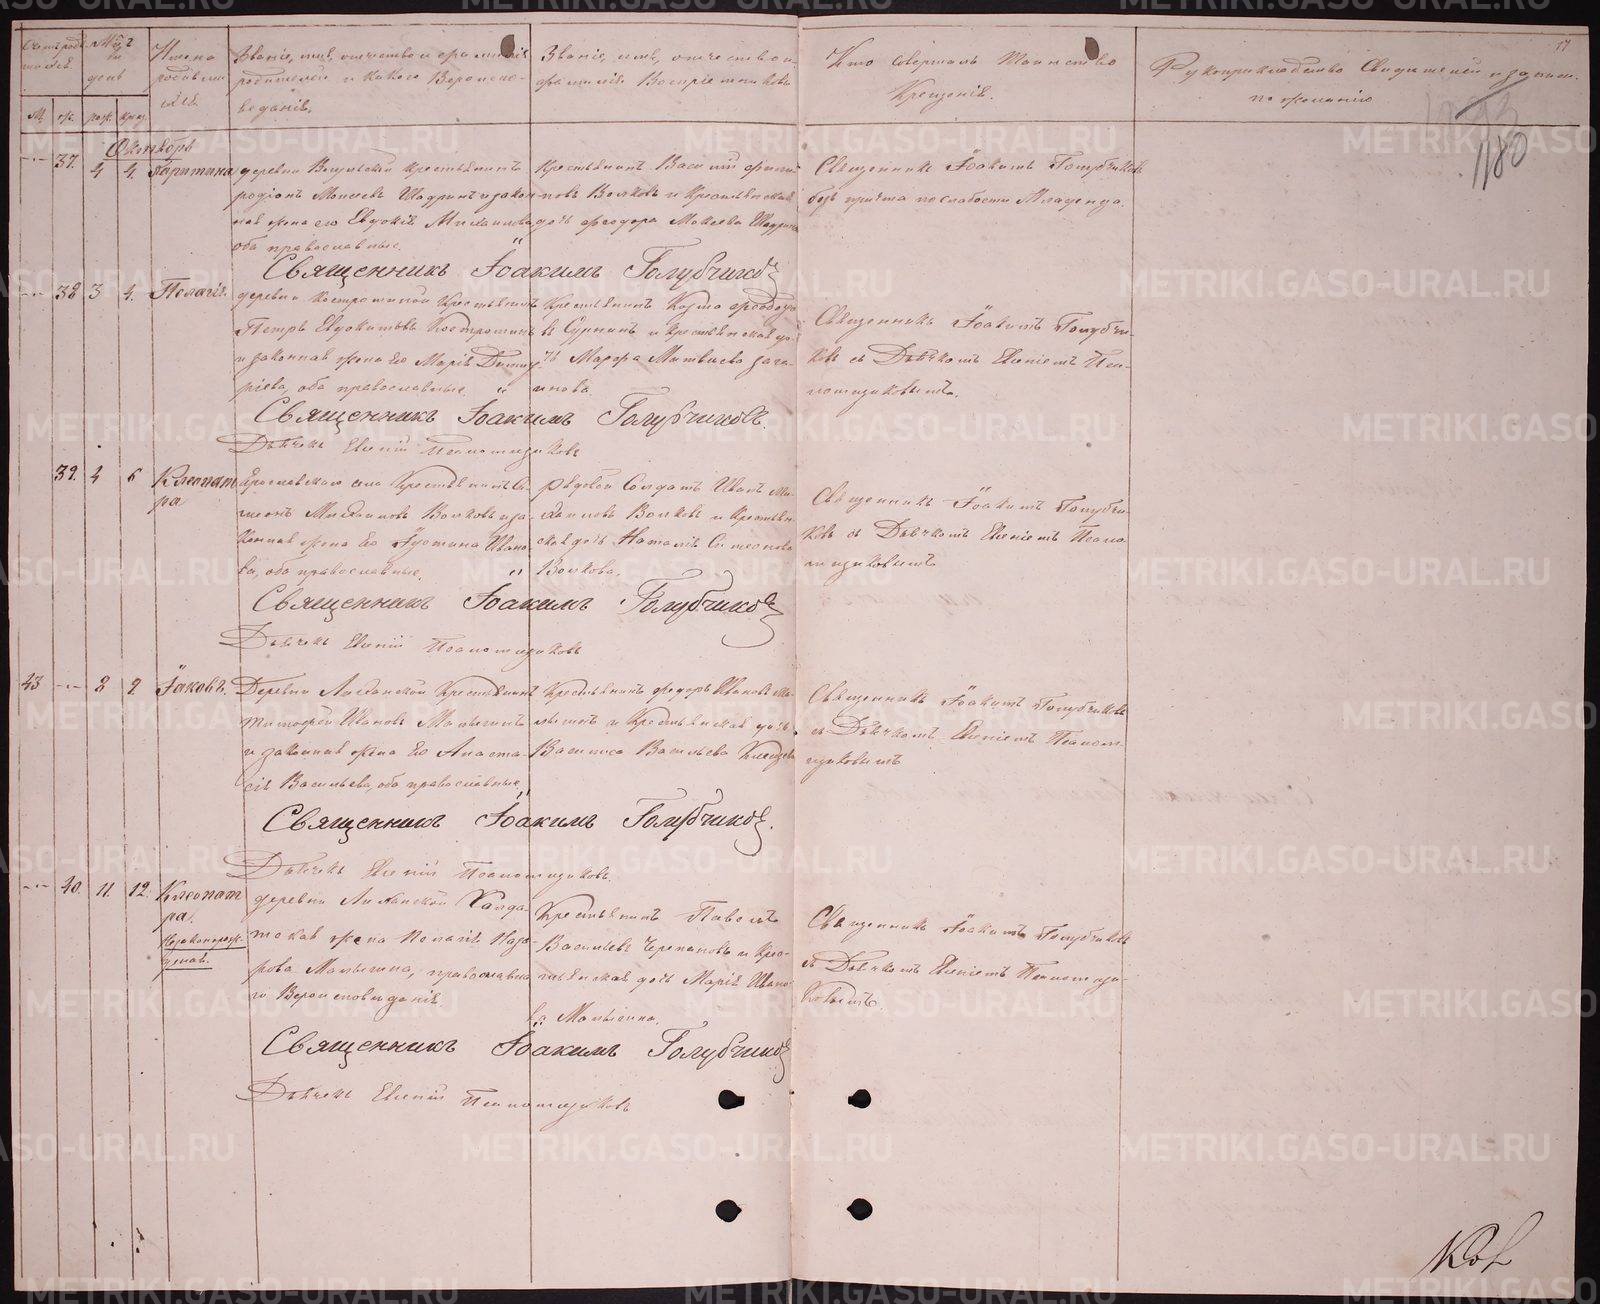 Счетъ родив-
шихся.
Мѣсяцъ и
день
Имена
родивши
хся.
Званіе, имя, отчество и фамилія
родителей и какого Вероиспо-
веданія.
Званіе, имя, отчество и
фамилія Воспріемниковъ
Кто совершалъ Таинство
Крещенія.
Рукоприкладство Свидетелей о записи
по желанію
17
1180
М. ж. рож. крещ.
Октябрь
37. 4 4.
деревни крестьянинъ
Родіонъ Моисеевъ Шадринъ и закон-
ная жена его Евдокія Михаилова
оба православные.
Крестьянинъ Василій
Волковъ и Крестьянская
дочь Феодора Моисеева Шадрина
Священникъ Іоакимъ Голубчиковъ
безъ причта по слабости Младенца.
Священникъ Іоакимъ Голубчиковъ
38 3 4. Пелагія.
деревни Костроминой Крестьянинъ
Петръ Евдокимовъ Костроминъ
и законная жена Его Марія Димит-
ріева, оба православные.
Крестьянинъ Козма Феодоро-
въ Суринъ и Крестьянская до-
чь Марфа Матвиева
Священникъ Іоакимъ Голубчи-
ковъ съ Дьячкомъ Евгеніемъ Псал-
мощиковымъ.
Священникъ Іоакимъ Голубчиковъ.
Дьячекъ Евгеній Псаломщиковъ
39. 4 6 Клеопат
ра
села Крестьянинъ Си-
меонъ Михаиловъ Волковъ и за-
конная жена Его Іустина Ивано-
ва, оба православные.
Рядовой Солдатъ Иванъ Ми-
хаиловъ Волковъ и Крестьян-
ская дочь Наталія Симеонова
Волкова.
Священникъ Іоакимъ Голубчи-
ковъ съ Дьячкомъ Евгеніемъ Псало-
мщиковымъ
Священникъ Іоакимъ Голубчиковъ
Дьячекъ Евгеній Псаломщиковъ
43 8 9 Іаковъ.
Деревни Крестьянинъ
Тимофей Ивановъ Малыгинъ
и законная жена Его Анаста-
сія Васильева, оба православные
Крестьянинъ Федоръ Ивановъ Ма-
лыгинъ и Крестьянская дочь
Васильева
Священникъ Іоакимъ Голубчиковъ
съ Дьячкомъ Евгеніемъ Псалом-
щиковымъ
Священникъ Іоакимъ Голубчиковъ.
Дьячекъ Евгеній Псаломщиковъ.
40. 11. 12. Клеопат
ра.
незаконорож-
деная.
деревни Салда-
тская жена Пелагія Наза-
рова Малыгина, православна-
го Вероисповеданія.
Крестьянинъ Павелъ
Васильевъ Черепановъ и Крес-
тьянская дочь Марія Ивано-
ва Малыгина.
Священникъ Іоакимъ Голубчиковъ
съ Дьячкомъ Евгеніемъ Псаломщи-
ковымъ
Священникъ Іоакимъ Голубчиковъ
Дьячекъ Евгеній Псаломщиковъ
METRIKI.GASO-URAL.RU